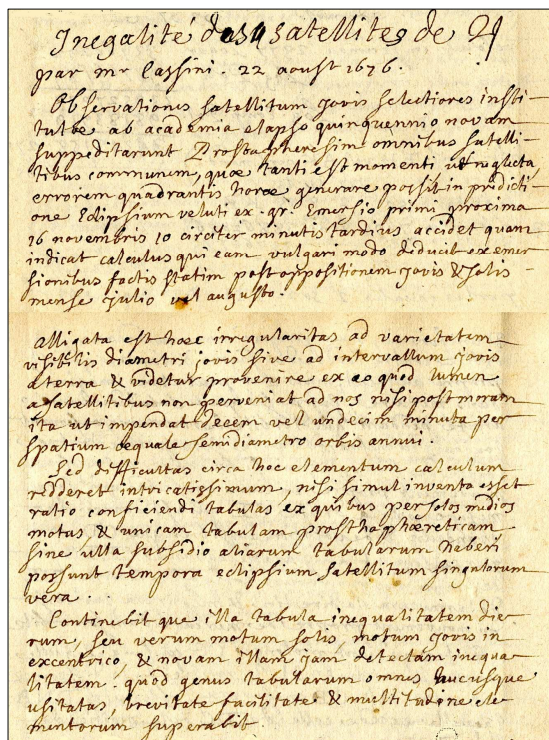 Inegalité des 4 satellites de ♃
par mr Cassini. 22 aoust 1676.
Observationes satellitum jovis selectiores insti-
tutæ ab academia elapso quinquennio novam
suppeditarunt Prostapheresim omnibus satelli-
tibus communem, quæ tanti est momenti ut neglecta
errorem quadrantis horæ generare possit in prædicti-
one Eclipsium veluti ex. gr. Emersio primi proxima
16 novembris 10 circiter minutis tardius accidet quam
indicat calculus qui eam vulgari modo deducit ex emer
sionibus factis statim post oppositionem jovis & solis
mense julio vel augusto.
alligata est hæc irregularitas ad varietatem
visibilis diametri jovis sive ad intervallum jovis
a terra & videtur provenire ex eo quod lumen
a satellitibus non perveniat ad nos nisi post moram
ita ut impendat decem vel undecim minuta per
spatium æquale semidiametro orbis annui.
Sed difficultas circa hoc elementum calculum
redderet intricatissimum, nisi simul inventa esset
ratio conficiendi tabulas ex quibus per solos medios
motus, & unicam tabulam prosthaphæreticam
sine ulla subsidio aliarum tabularum haberi
possunt tempora eclipsium satellitum singulorum
vera.
Continebit que illa tabula inequalitatem die-
rum, seu verum motum solis, motum jovis in
excentrico, & novam illam jam detectam inequa-
litatem. quod genus tabularum omnes hucusque
usitatas, brevitate facilitate & multitudine ele-
mentorum superabit.